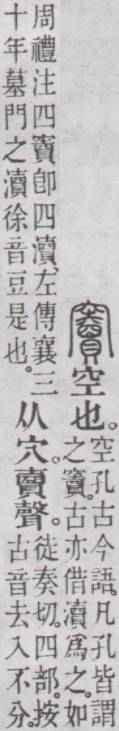 竇空也。
空孔古今語。凡孔皆謂
之竇。古亦借瀆爲之。如
周禮注四竇卽四瀆、左傳襄三
十年墓門之瀆徐音豆是也。
从穴。賣聲。
徒奏切。四部。按
古音去入不分。